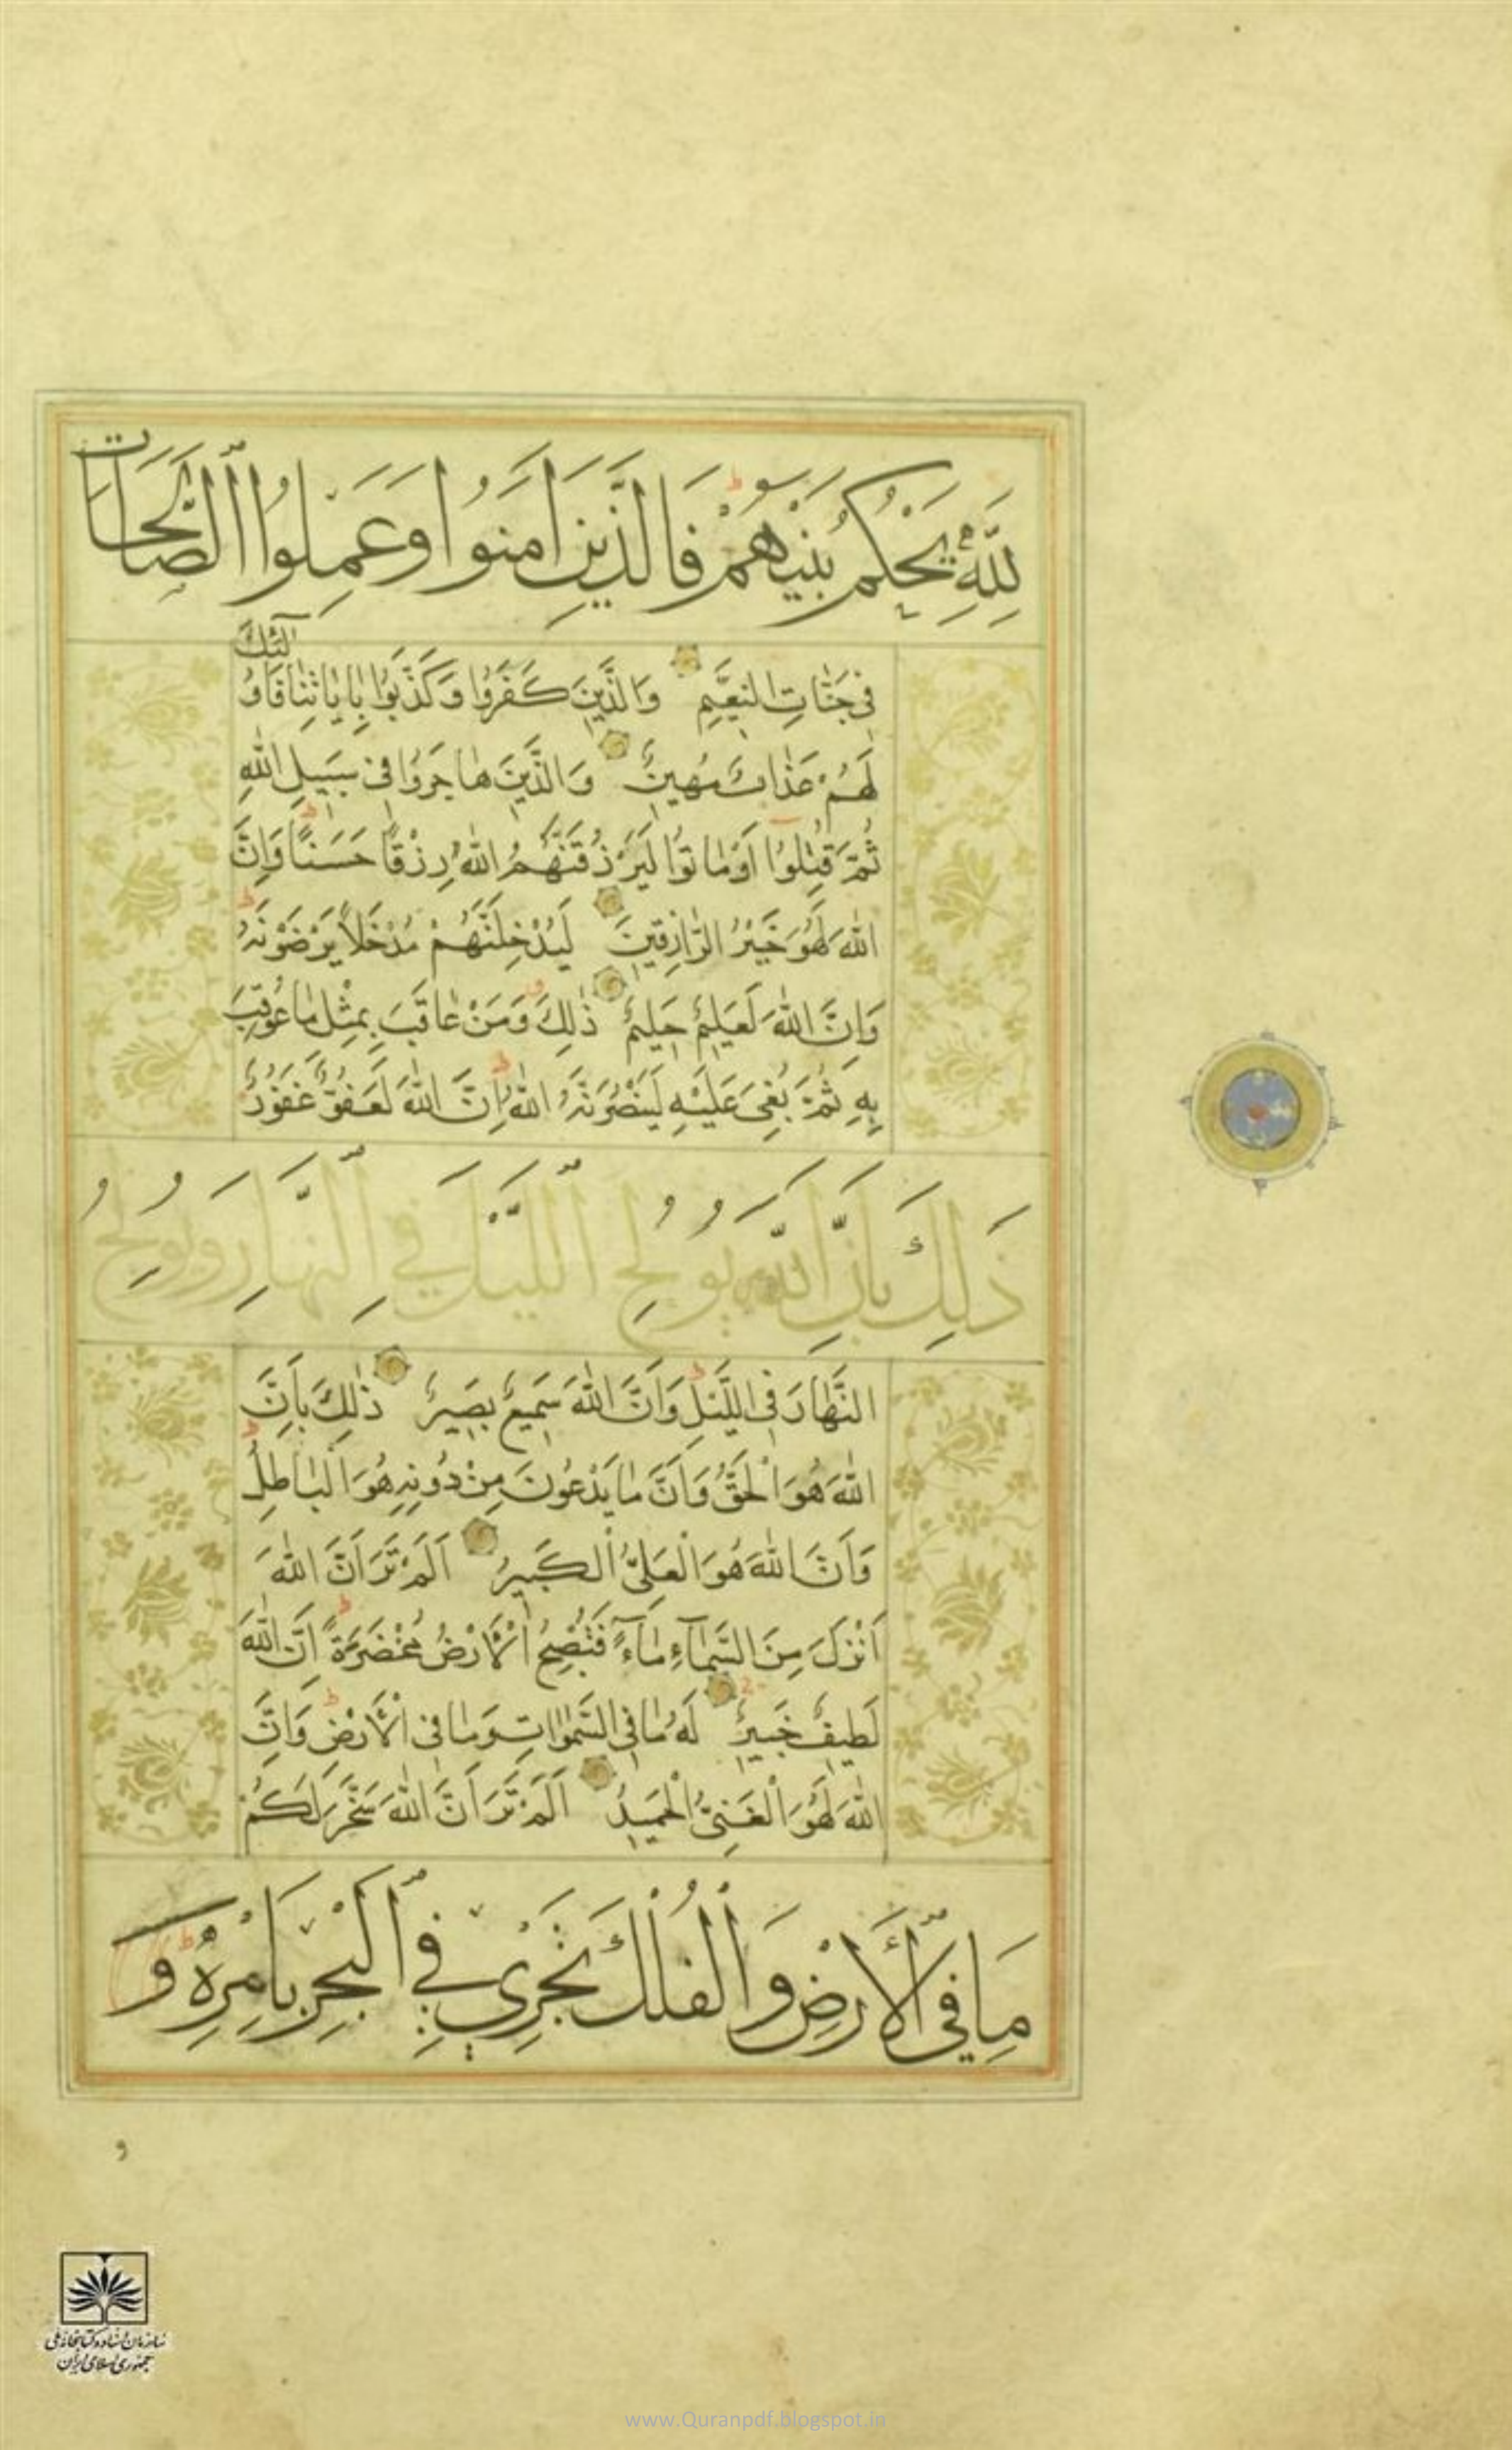 لِلَّهِ يَحْكُمُ بَيْنَهُمْ فَالَّذِينَ اٰمَنُوا وَعَمِلُوا الصَّالِحَاتِ
فِي جَنَّاتِ النَّعِيمِ وَالَّذِينَ كَفَرُوا وَكَذَّبُوا بِاٰيَاتِنَا فَاُولٰئِكَ
لَهُمْ عَذَابٌ مُهِينٌ وَالَّذِينَ هَاجَرُوا فِي سَبِيلِ اللّٰهِ
ثُمَّ قُتِلُوا اَوْ مَاتُوا لَيَرْزُقَنَّهُمُ اللّٰهُ رِزْقًا حَسَنًا وَاِنَّ
اللّٰهَ لَهُوَ خَيْرُ الرَّازِقِينَ لَيُدْخِلَنَّهُمْ مُدْخَلًا يَرْضَوْنَهُ
وَاِنَّ اللّٰهَ لَعَلِيمٌ حَلِيمٌ ذٰلِكَ وَمَنْ عَاقَبَ بِمِثْلِ مَا عُوقِبَ
بِهِ ثُمَّ بُغِيَ عَلَيْهِ لَيَنْصُرَنَّهُ اللّٰهُ اِنَّ اللّٰهَ لَعَفُوٌّ غَفُورٌ
ذَلِكَ بِاَنَّ اللّٰهَ يُولِجُ اللَّيْلَ فِي النَّهَارِ وَيُولِجُ
النَّهَارَ فِي اللَّيْلِ وَاَنَّ اللّٰهَ سَمِيعٌ بَصِيرٌ ذٰلِكَ بِاَنَّ
اللّٰهَ هُوَ الْحَقُّ وَاَنَّ مَا يَدْعُونَ مِنْ دُونِهِ هُوَ الْبَاطِلُ
وَاَنَّ اللّٰهَ هُوَ الْعَلِيُّ الْكَبِيرُ اَلَمْ تَرَ اَنَّ اللّٰهَ
اَنْزَلَ مِنَ السَّمَآءِ مَآءً فَتُصْبِحُ الْاَرْضُ مُخْضَرَّةً اِنَّ اللّٰهَ
لَطِيفٌ خَبِيرٌ لَهُ مَا فِي السَّمٰوَاتِ وَمَا فِي الْاَرْضِ وَاِنَّ
اللّٰهَ لَهُوَ الْغَنِيُّ الْحَمِيدُ اَلَمْ تَرَ اَنَّ اللّٰهَ سَخَّرَ لَكُمْ
مَا فِي الْاَرْضِ وَالْفُلْكَ تَجْرِي فِي الْبَحْرِ بِاَمْرِهِ وَ
و
سازمان اسناد و کتابخانه ملی
جمهوری اسلامی ایران
www.Quranpdf.blogspot.in